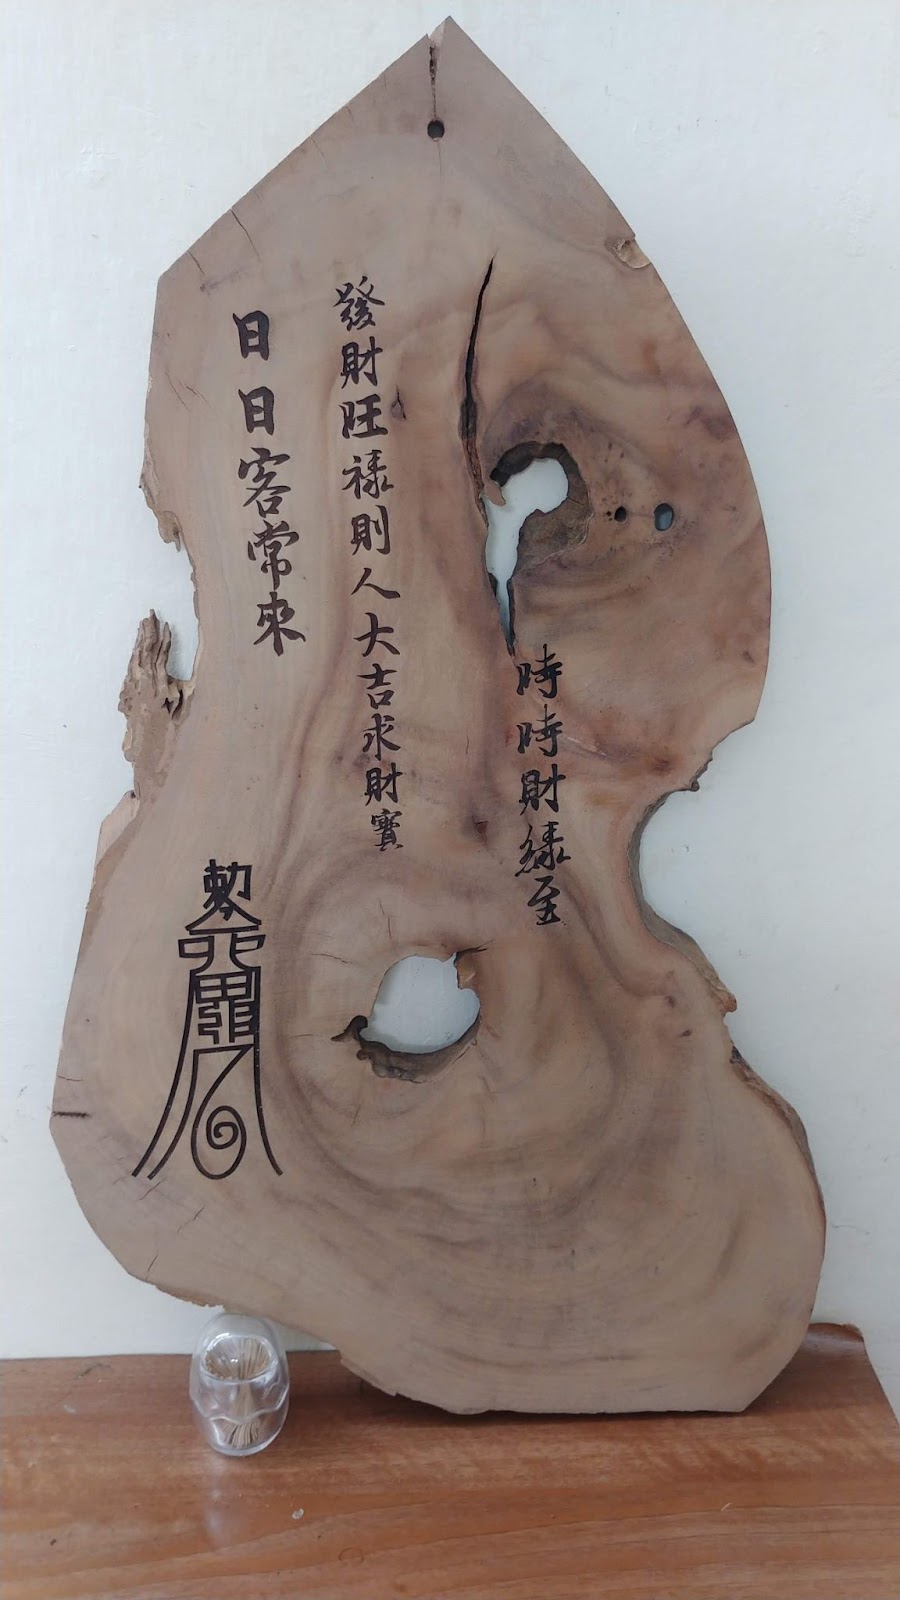 時時財緣至
發財旺祿則人大吉求財寶
日日客常來
勅令